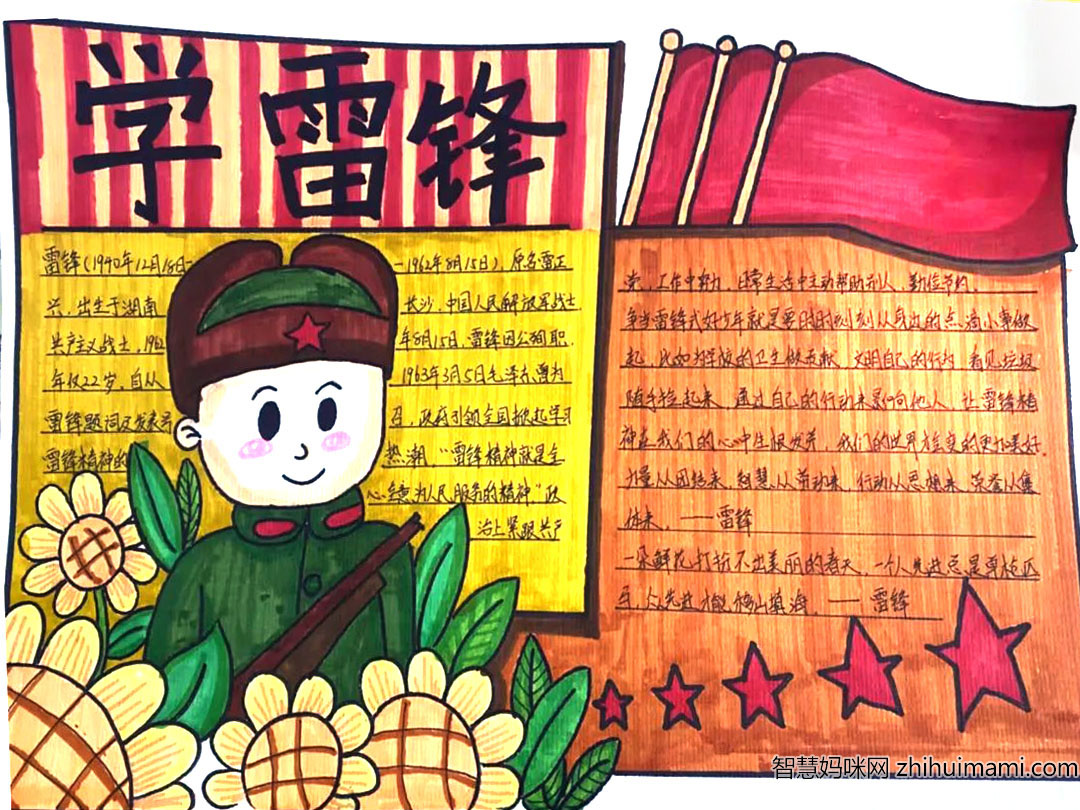 学雷锋
雷锋(1940年12月18日-
-1962年8月15日), 原名雷正
兴, 出生于湖南
长沙, 中国人民解放军战士
共产主义战士, 1962
年8月15日, 雷锋因公殉职
年仅22岁, 自从
1963年3月5日毛泽东曾为
雷锋题词又发表号
召, 政府引领全国掀起学习
雷锋精神的
热潮, "雷锋精神就是全
心全意为人民服务的精神"政
治上紧跟共产
党, 工作中努力, 日常生活中主动帮助别人, 勤俭节约,
争当雷锋式好少年就是要时时刻刻从身边的点滴小事做
起, 比如为学校的卫生做贡献, 文明自己的行为, 看见垃圾
随手捡起来, 通过自己的行动来影响他人, 让雷锋精
神在我们的心中生根发芽, 我们的世界才会变的更加美好.
力量从团结来, 智慧从劳动来, 行动从思想来, 荣誉从集
体来, ——雷锋
一朵鲜花打扮不出美丽的春天, 一个人先进总是单枪匹
马, 众先进才能移山填海, —— 雷锋
智慧妈咪网 zhihuimami.com